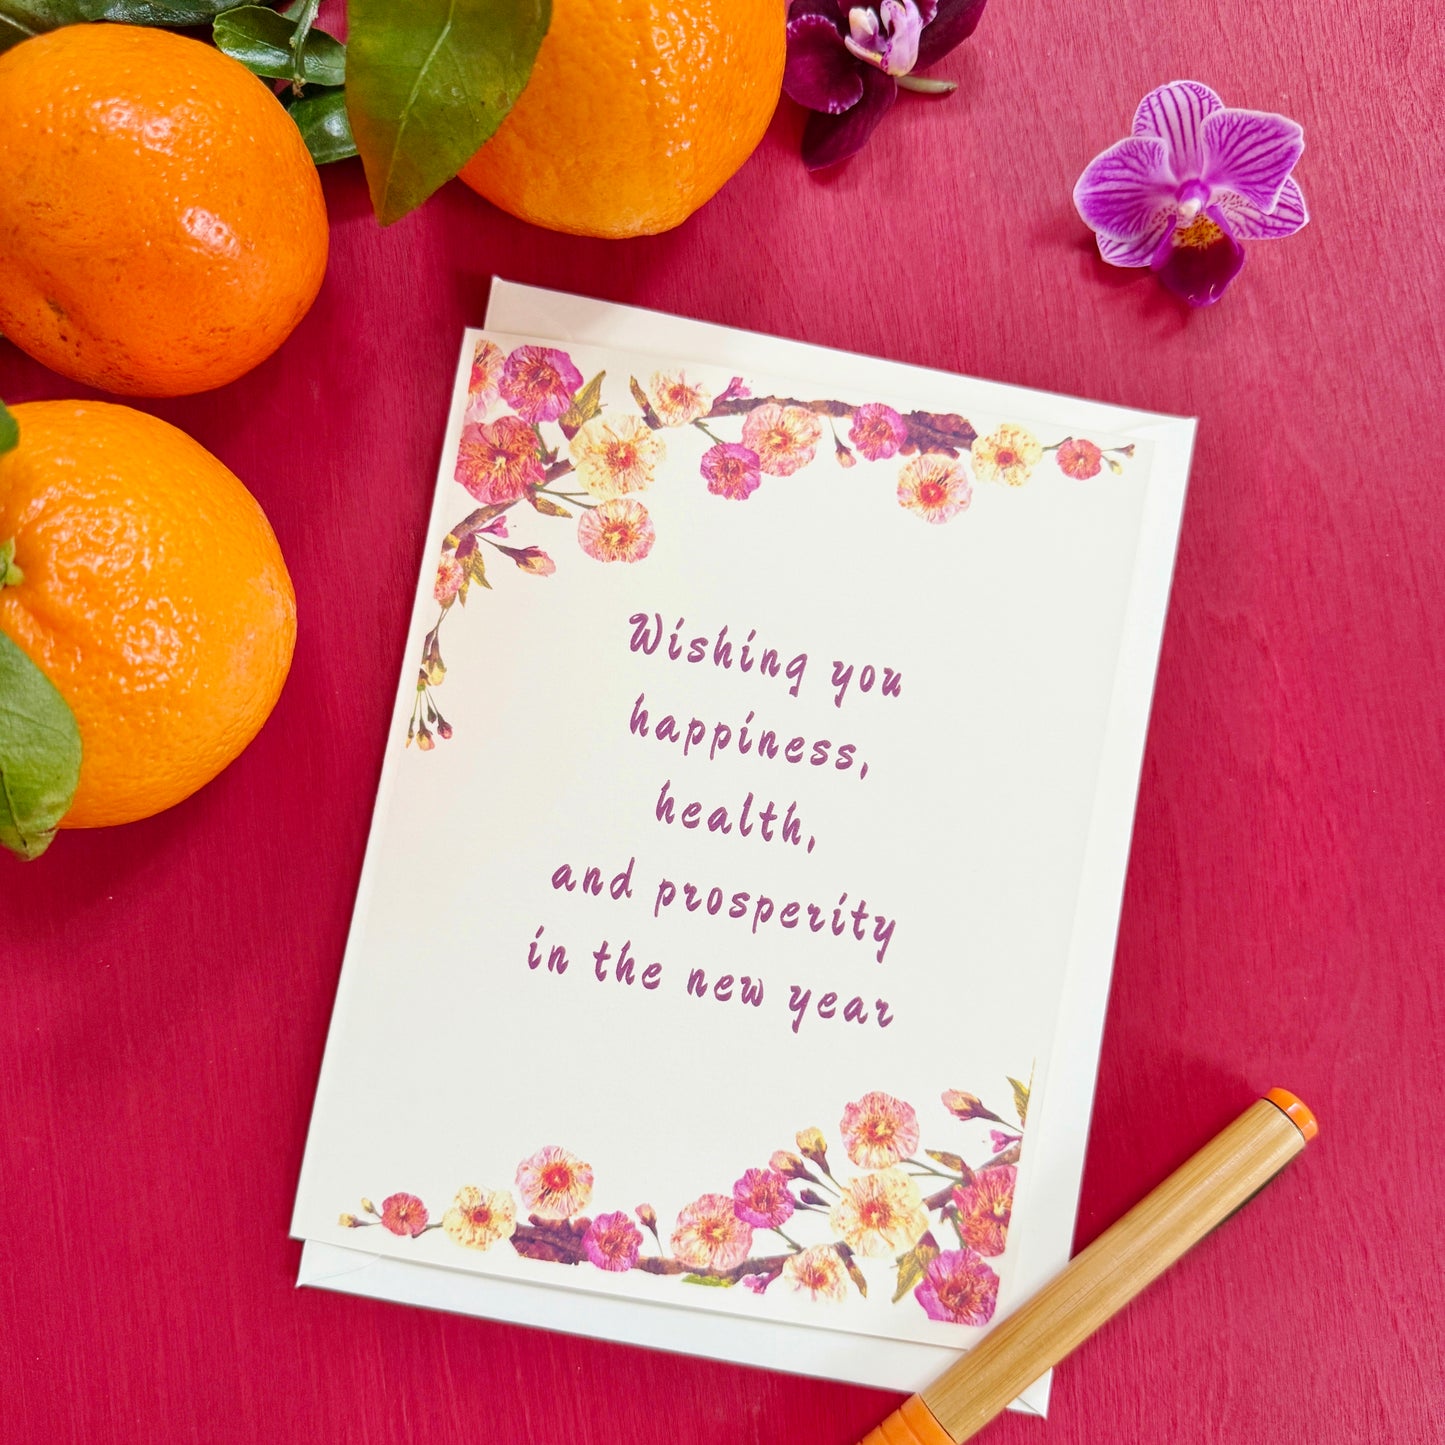 Wishing you
happiness,
health,
and prosperity
in the new year